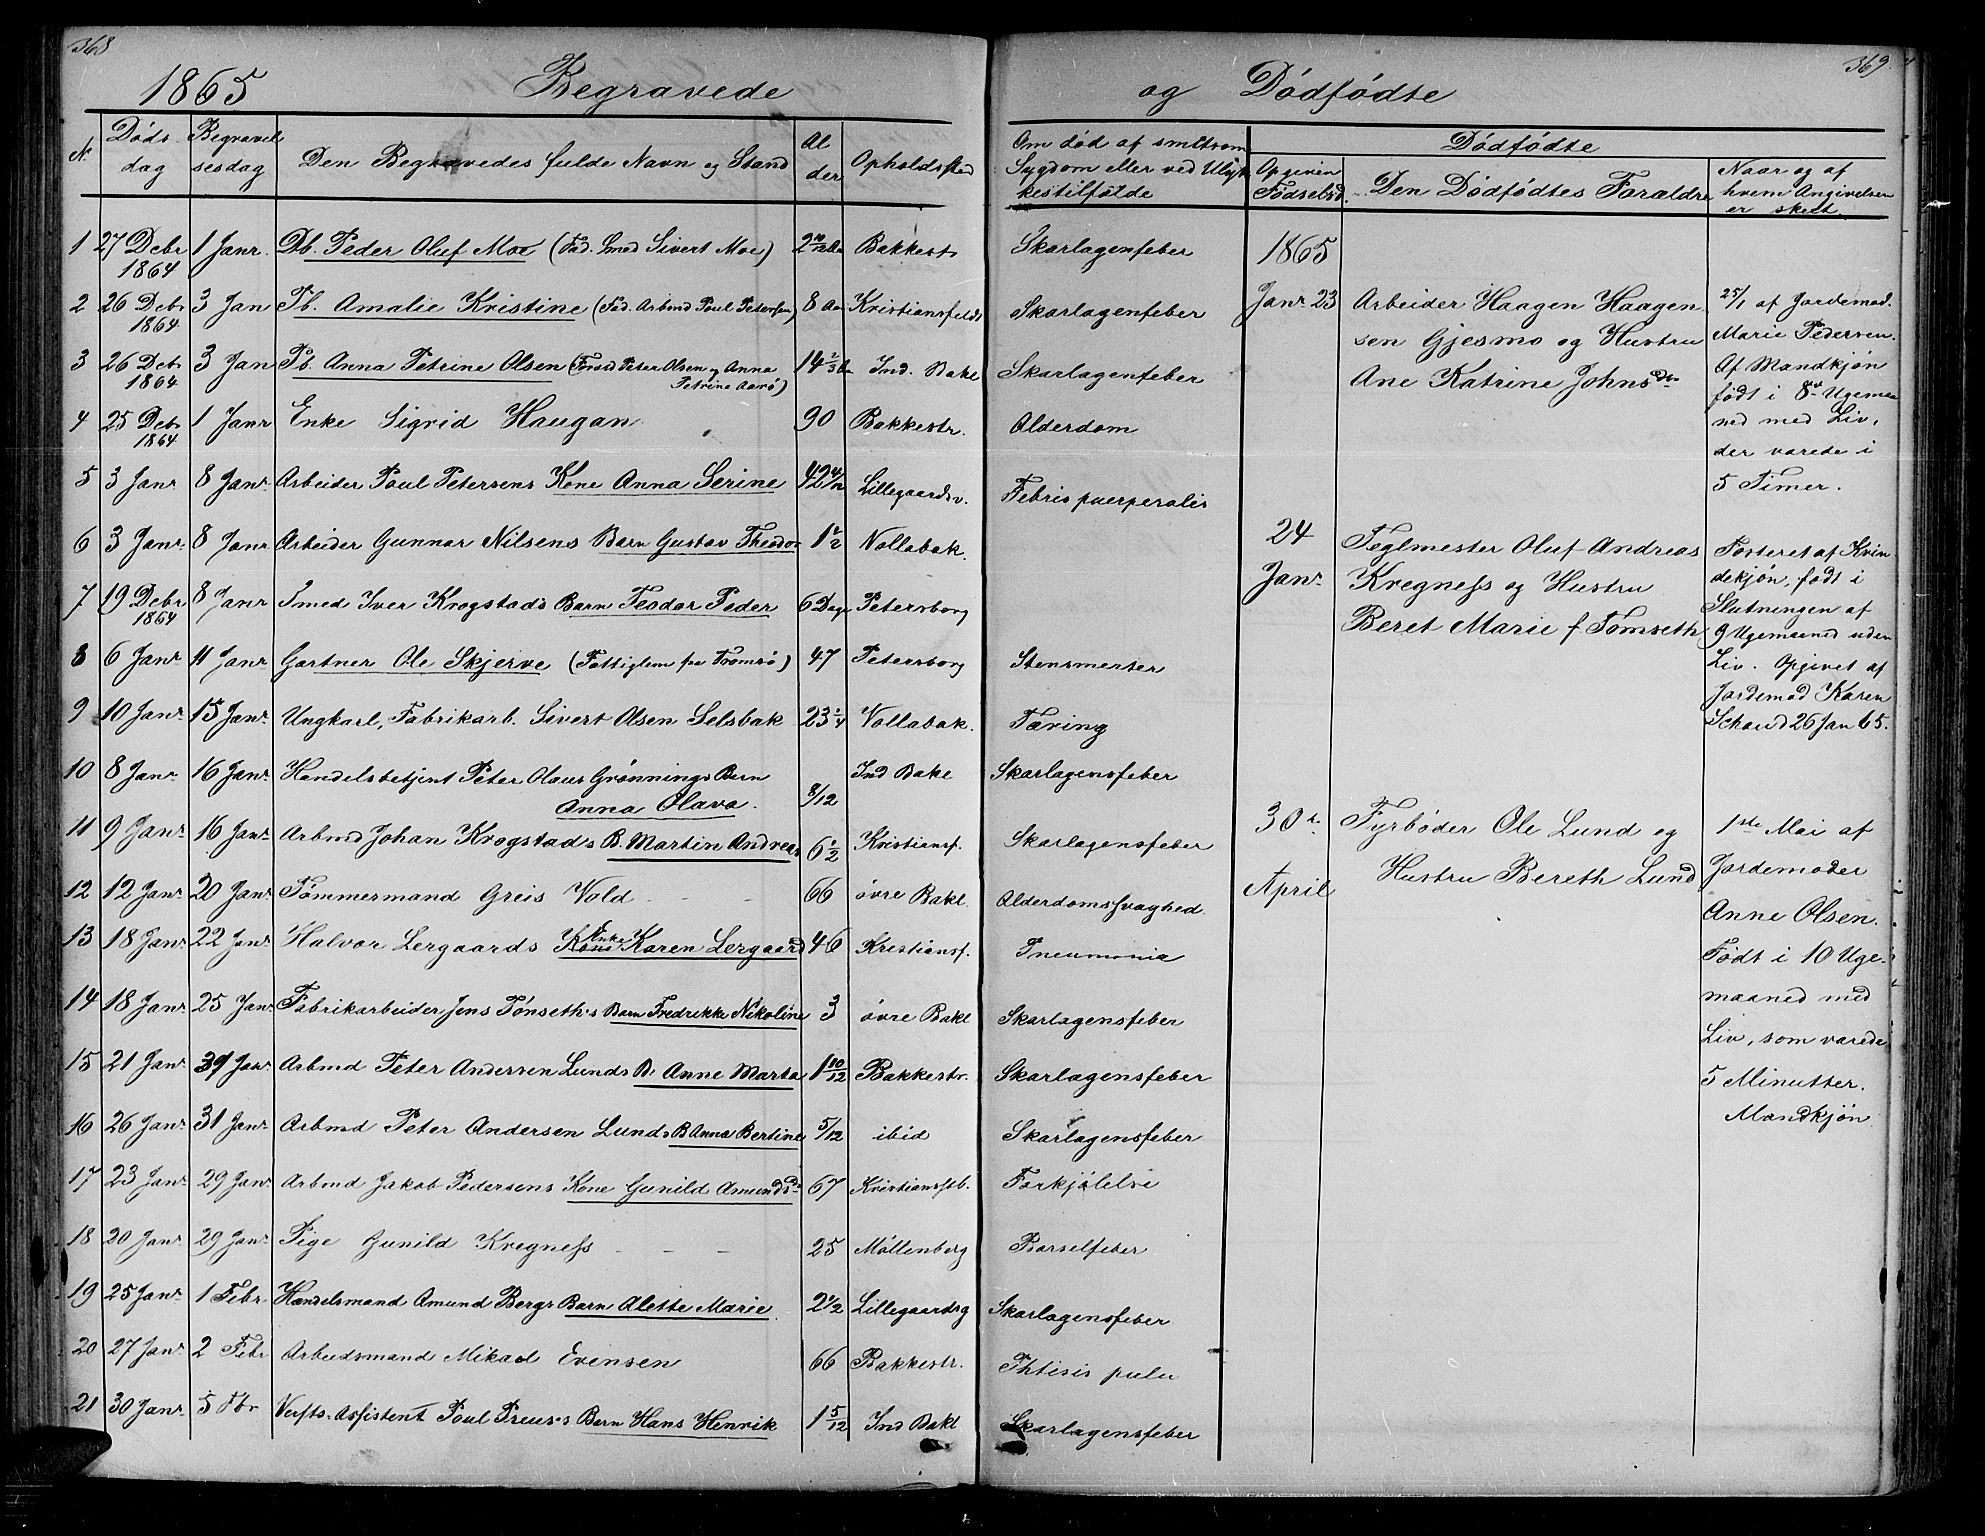 368
1865 Begravede
N. Døds dag Begravelsesdag Den Begravedes fulde Navn og Stand Alder Opholdssted
1 27 Debr 1864 1 Janr. Db. Peder Oluf Moe (Fad. Smed Sivert Moe) 2 10/12 Aar Bakkestr
2 26 Debr 1864 3 Jan Pb. Amalie Kristine (Fad. Arbmd Poul Petersen) 8 Aar Kristiansfeldt
3 26 Debr 1864 3 Jan Pb. Anna Petrine Olsen (Peter Olsen og Anna Petrine Aarø) 14 2/3 Ind. Bakl
4 25 Debr 1864 1 Janr Enke Sigrid Haugan 90 Bakkestr.
5 3 Janr 8 Janr. Arbeider Poul Petersens Kone Anna Serine 42 4/12 Lillegaardsv.
6 3 Janr. 8 Janr Arbeider Gunnar Nilsens Barn Gustav Theodor 1 1/2 Vollabak.
7 19 Debr 1864 8 Janr Smed Iver Krogstads Barn Teodor Peder 6 Dage Petersborg
8 6 Janr 11 Janr Gartner Ole Skjerve (Fattiglem fra Tromsø) 47 Petersborg
9 10 Janr 15 Janr. Ungkarl, Fabrikarb. Sivert Olsen Selsbak 23 1/4 Vollabak.
10 8 Janr 16 Janr. Handelsbetjent Peter Olaus Grønnings Barn Anna Olava. 8/12 Ind Bakl
11 9 Janr. 16 Janr. Arbmd Johan Krogstads B. Martin Andreas 6 1/2 Kristiansf.
12 12 Janr 20 Janr. Tømmermand Greis Vold - - - 66 øvre Bakl.
13 18 Janr. 22 Janr. Halvor Lergaards Kone Enke Karen Lergaard 46 Kristiansf.
14 18 Janr 25 Janr Fabrikarbeider Jens Tønseth's Barn Fredrikke Nikoline 3 øvre Bakl
15 21 Janr Janr. Arbmd Peter Andersen Lunds B. Anne Marta 1 10/12 Bakkestr.
16 26 Janr 31 Janr. Arbmd Peter Andersen Lunds B Anna Bertine 5/12 ibid
17 23 Janr 29 Janr. Arbmd Jakob Pedersens Kone Gunild Amundsdr 67 Kristiansfb.
18 20 Janr. 29 Janr. Pige Gunild Kregness - - - 25 Møllenberg
19 25 Janr 1 Febr Handelsmand Amund Bergs Barn Alette Marie. 2 1/2 Lillegaardsg
20 27 Janr 2 Febr Arbeidsmand Mikael Evensen 66 Bakkestr.
21 30 Janr. 5 Fbr Verfts-Assistent Poul Preus's Barn Hans Henrik 1 5/12 Ind Bakl
369
og Dødfødte
Om død af smitsom
Sygdom eller ved Ulyk
kestilfælde
Skarlagenfeber
Skarlagenfeber
Skarlagenfeber
Alderdom
Febris puerperalis
Stensmerter
Tæring
Skarlagensfeber
Skarlagensfeber
Alderdomssvaghed.
Pneumonia
Skarlagensfeber
Skarlagensfeber
Skarlagensfeber
Forkjølelse
Barselfeber
Skarlagensfeber
Phtisis pulm
Skarlagensfeber
Dødfødte
Opgiven Fødselsd. Den Dødfødtes Forældre Naar og af hvem Angivelsen er skeet.
1865
Janr 23
Arbeider Haagen Haagen
sen Gjesmo og Hustru
Ane Katrine Johnsdr
25/1 af Jordemod.
Marie Pedersen.
Af Mandkjøn
født i 8de Ugemaa
ned med Liv,
der varede i
5 Timer.
24
Janr.
Teglmester Oluf Andreas
Kregness og Hustru
Beret Marie f. Tømseth
Fosteret af Kvin
dekjøn, født i
Slutningen af
9 Ugemaaned uden
Liv. Opgivet af
Jordemod Karen
26 Jan 65.
30te
April
Fyrbøder Ole Lund og
Hustru Bereth Lund
1ste Mai af
Jordemoder
Anne Olsen.
Født i 10 Uge-
maaned med
Liv, som varede
5 Minutter.
Mandkjøn